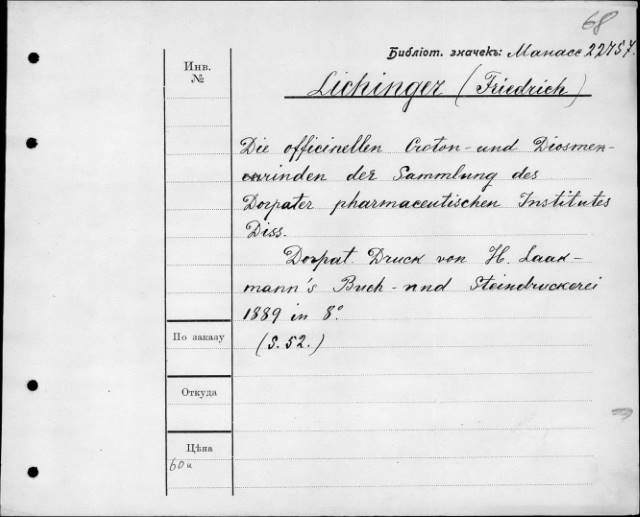 68
Библіот. значекъ: Манасс 22757.
Инв.
№
Lichinger (Friedrich)
Die officinellen Croton- und Diosmeen-
rinden der Sammlung des
Dorpater pharmaceutischen Institutes
Diss.
Dorpat. Druck von H. Laak-
mann's Buch- und Steindruckerei
1889 in 8°.
По заказу
(S. 52.)
Откуда
Цѣна
60 к